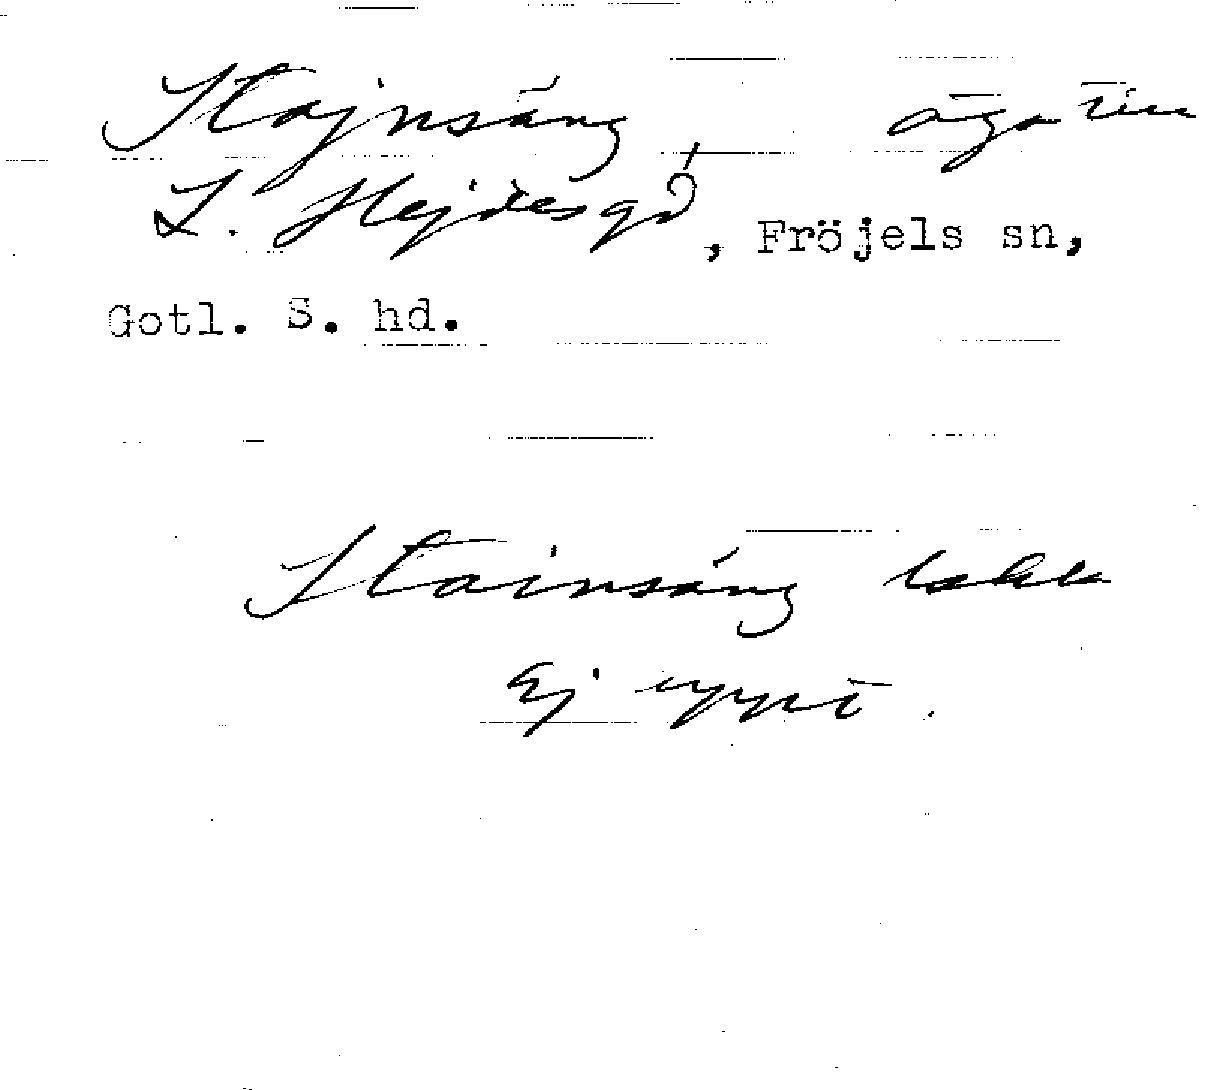 Stajnsäng äga till
L. Hejdesgd, Fröjels sn,
Gotl. S. hd.
Stainsäng
Ej uppt.